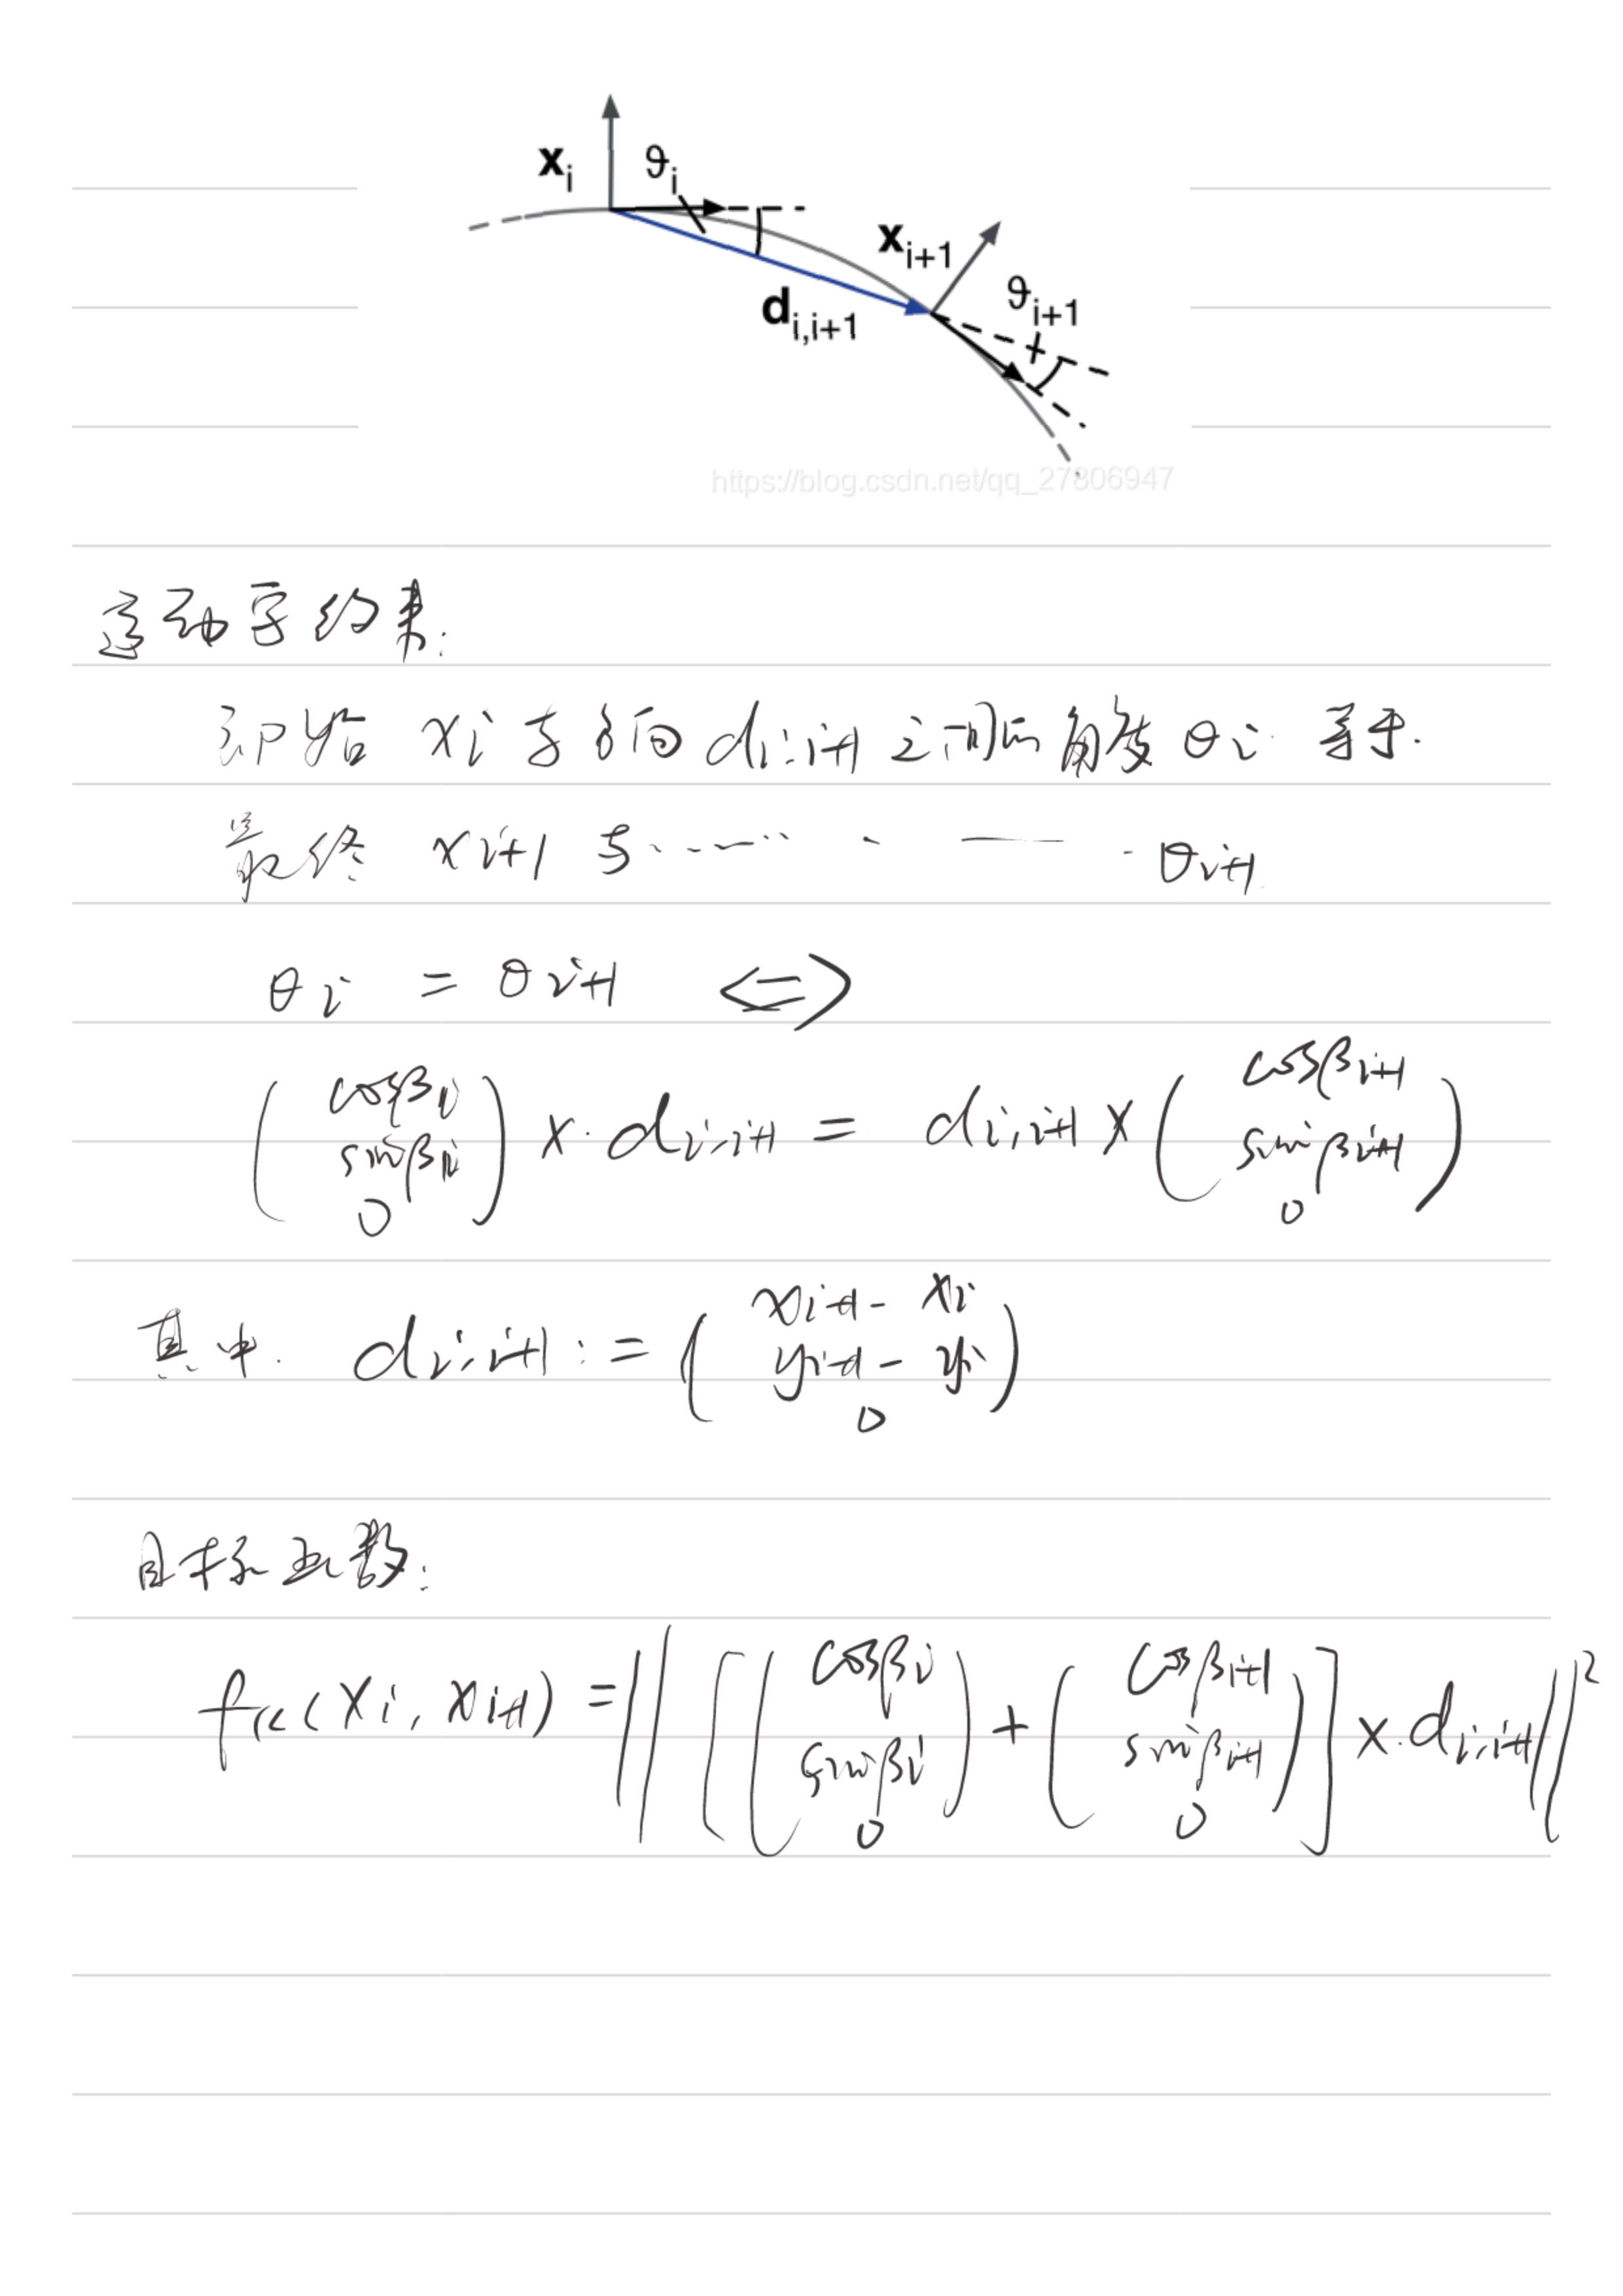 x_i ϑ_i
x_{i+1} ϑ_{i+1}
d_{i,i+1}
https://blog.csdn.net/qq_27806947
运动学约束:
初始 x_i 与方向 d_{i,i+1} 之间的角度 θ_i 等于.
最终 x_{i+1} 与........ θ_{i+1}
θ_i = θ_{i+1} <=>
(cosβ_i sinβ_i 0) × d_{i,i+1} = d_{i,i+1} × (cosβ_{i+1} sinβ_{i+1} 0)
其中. d_{i,i+1} := (x_{i+1} - x_i y_{i+1} - y_i 0)
目标函数:
f_k(x_i, x_{i+1}) = ‖[(cosβ_i sinβ_i 0) + (cosβ_{i+1} sinβ_{i+1} 0)] × d_{i,i+1}‖²